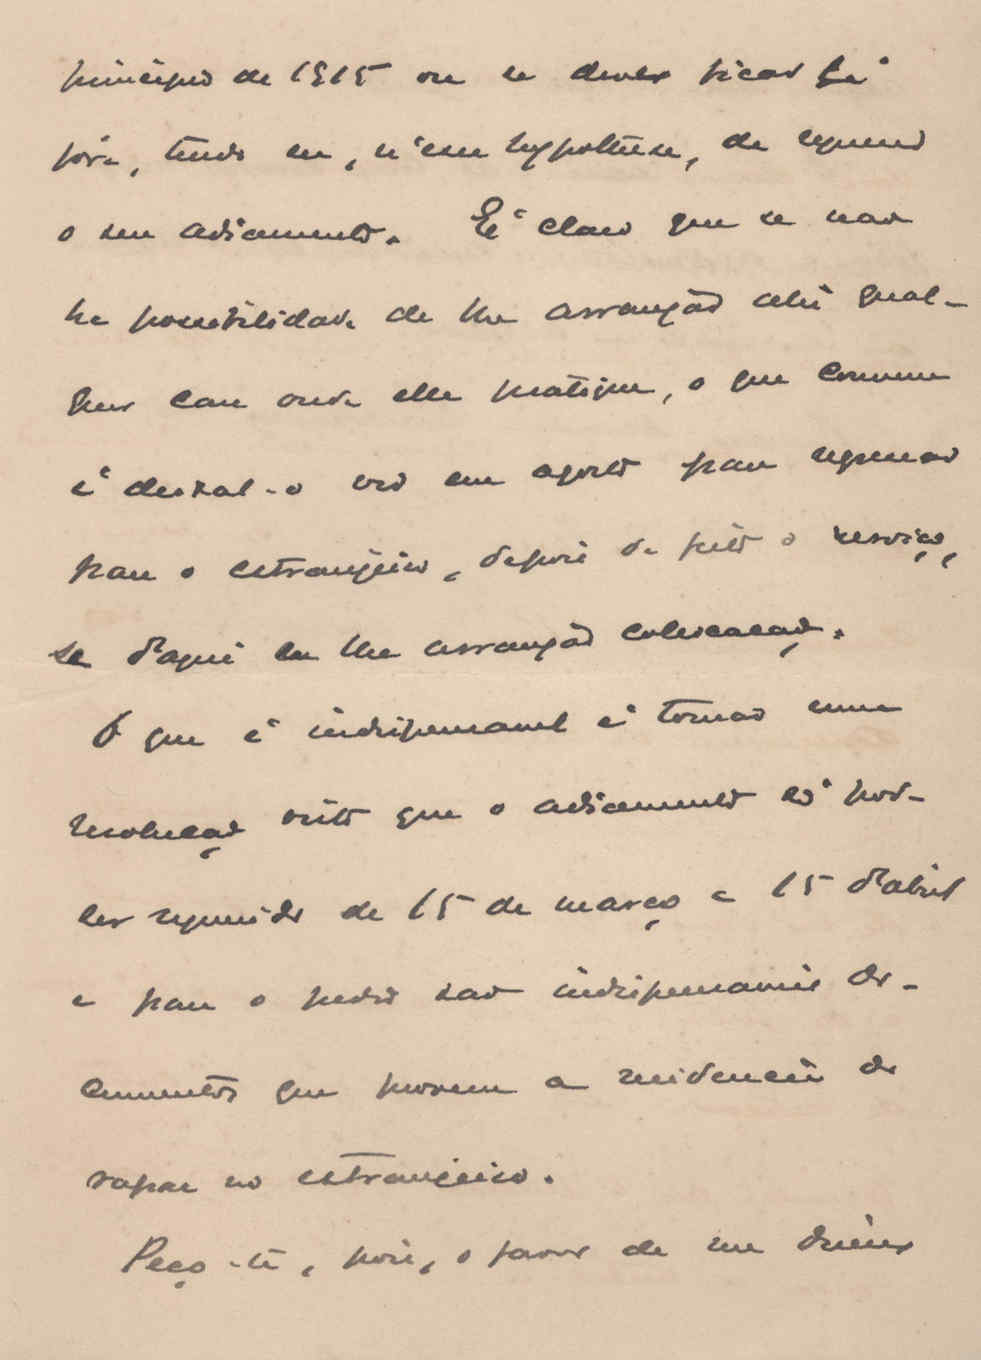 principio de 1915 ou se dever ficar lá
fóra, tendo eu, n'essa hypothese, de requerer
o seu adiamento. É claro que se não
ha possibilidade de lhe arranjar ahi qual-
quer casa onde elle pratique, o que convem
é deixal-o vir em agosto para regressar
para o estrangeiro, depois de feito o serviço,
se d'aqui eu lhe arranjar collocação.
O que é indispensavel é tomar uma
resolução visto que o adiamento só pode
ser requerido de 15 de março a 15 d'abril
e para o pedir são indispensaveis do-
cumentos que provem a residencia do
rapaz no estrangeiro.
Peço-te, pois, o favor de me dizeres